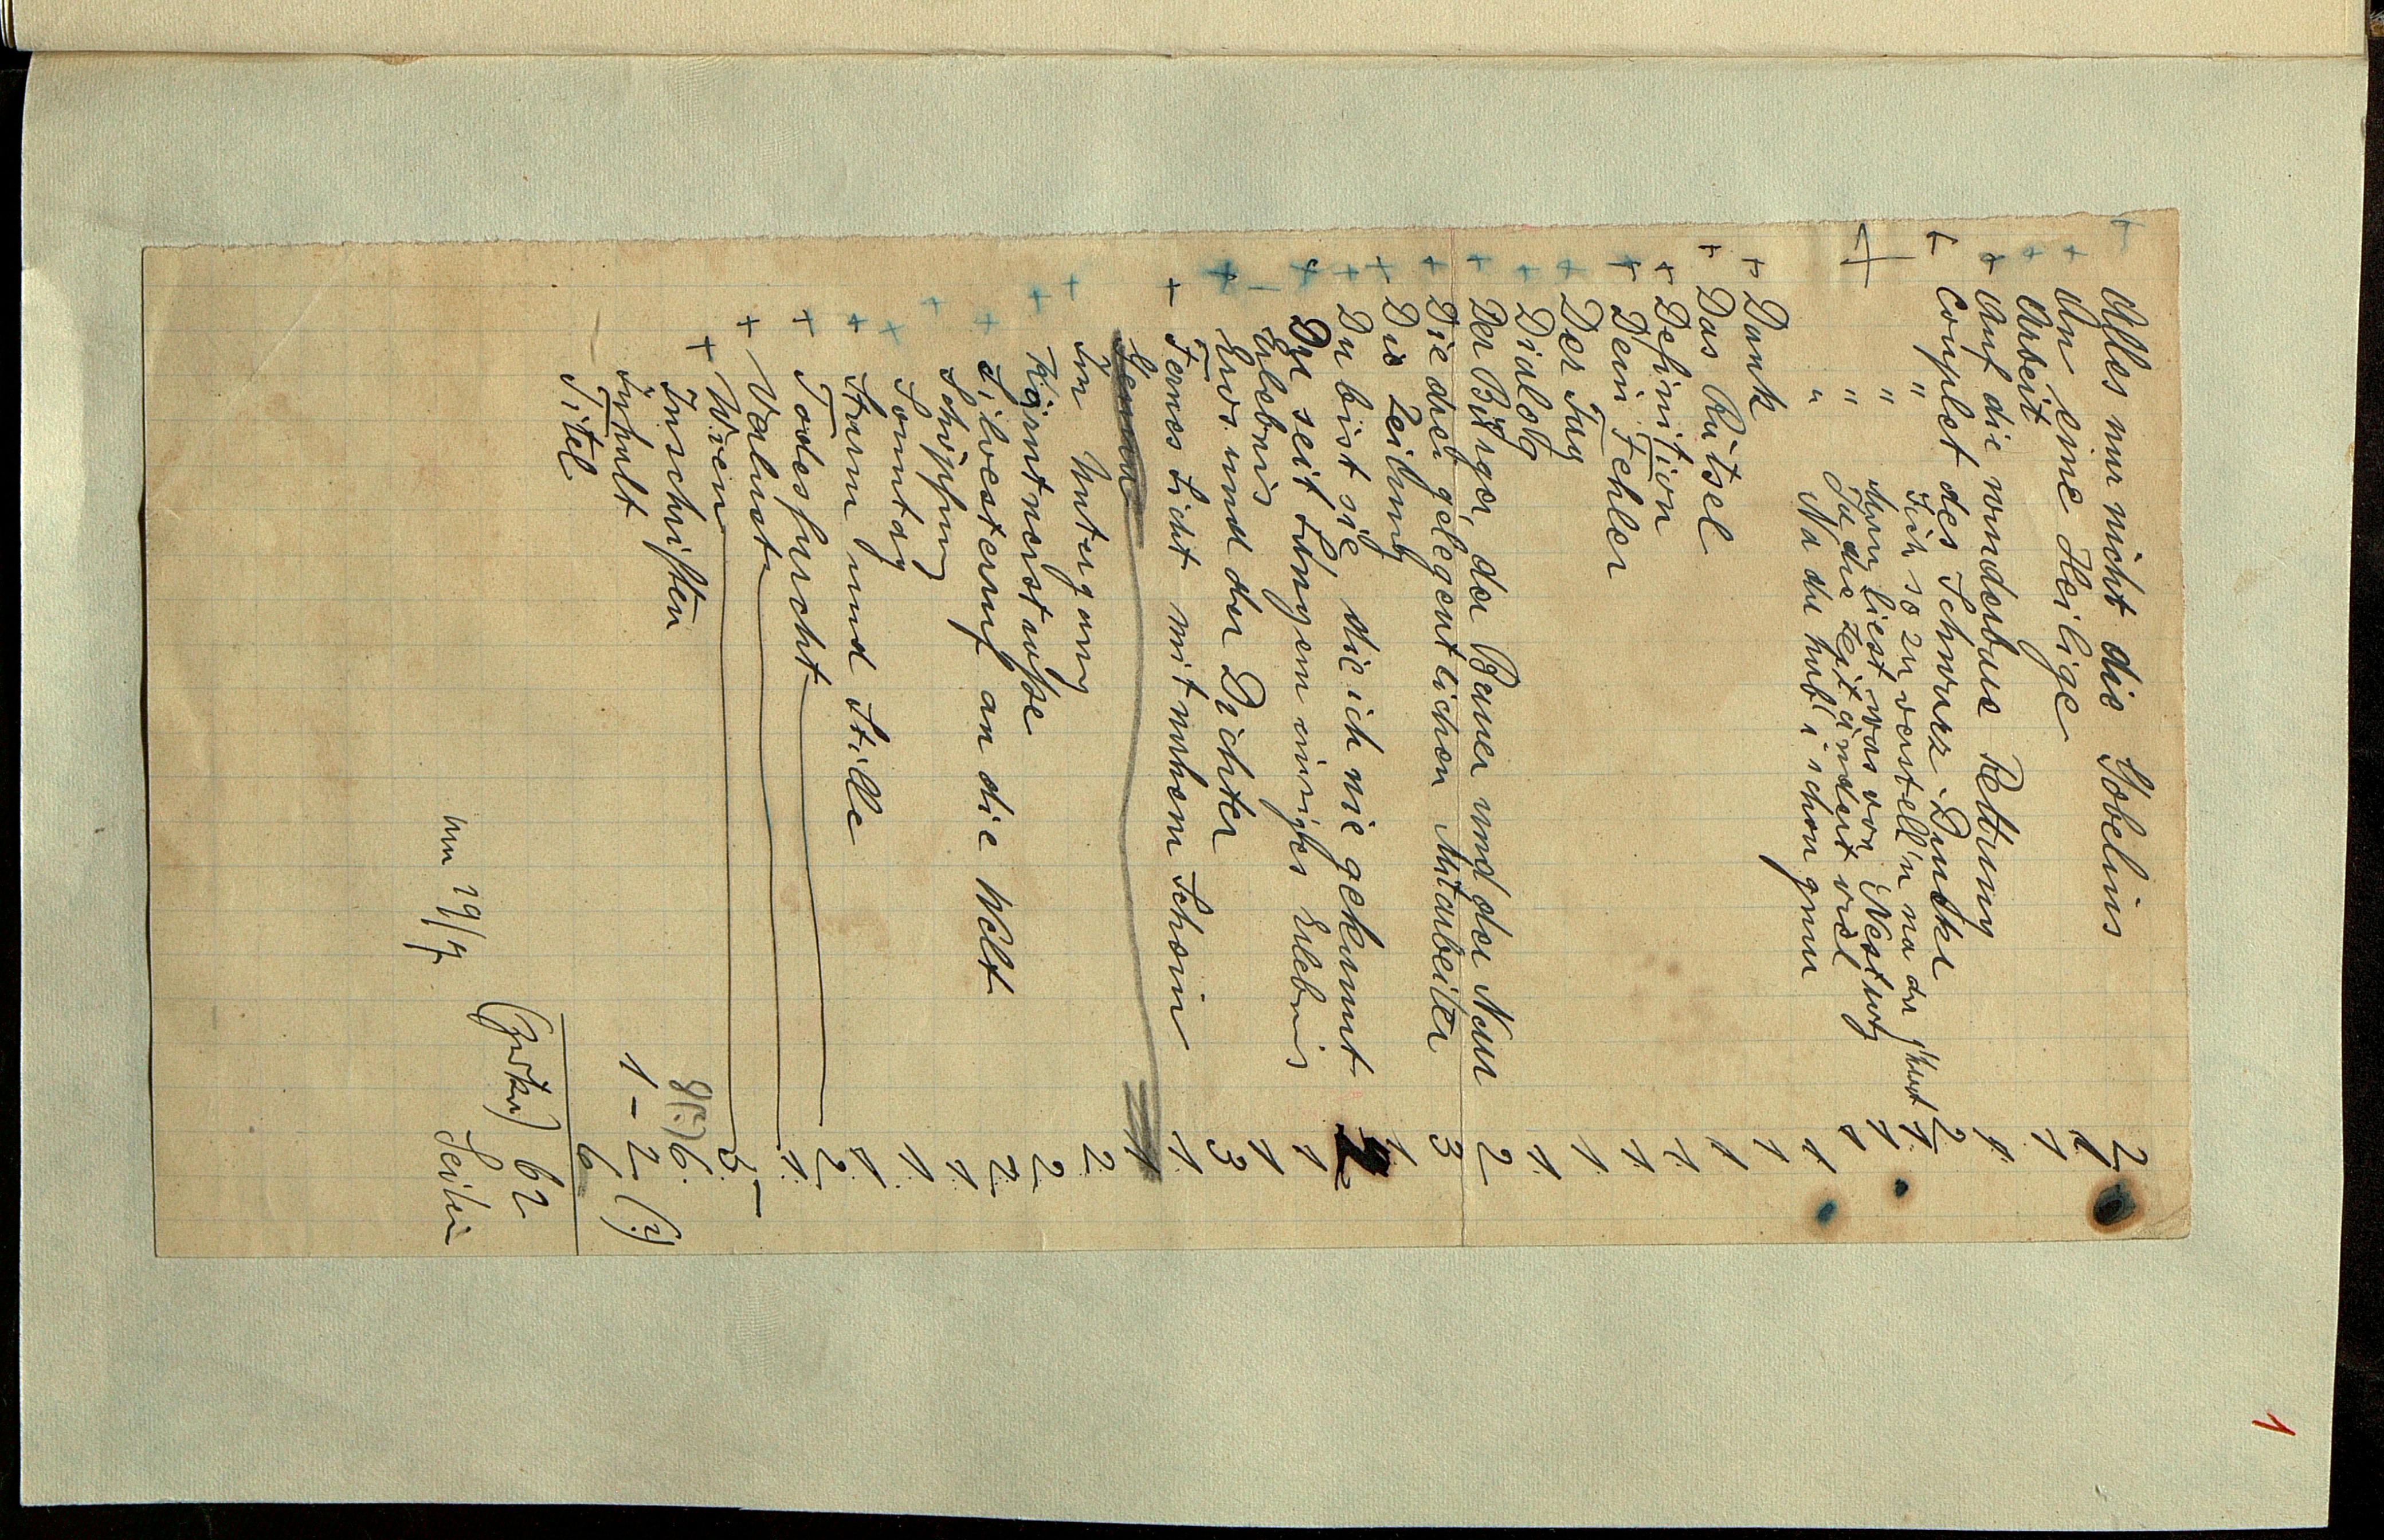 1
+ Alles nur nicht die Gobelins 2
+ An eine Heilige 1
+ Arbeit 1
+ Auf die wunderbare Rettung 1
+ Couplet des Schwarz-Drucker 2
" Sich so zu verstell'n na da g'hört 1
" Man liest was von Nestroy 1
" Ja die Zeit ändert viel 1
" Na da hab' i schon gnur 1
+ Dank 1
+ Das Rätsel 1
+ Definition 1
+ Dein Fehler 1
+ Der Tag 1
+ Dialog 1
+ Der Bürger, der Bauer und der Neun 2
+ Die drei gelegentlichen Mitarbeiter 3
+ Die Zeitung 1
+ Du bist sie die ich nie gekannt 2
+ Du seit langem einziges Erlebnis 1
– Erlebnis 1
+ Eros und der Dichter 3
+ Fernes Licht mit nahem Schein 1
+ Im Untergang 2
+ Kärntnerstraße 2
+ Silvesterruf an die Welt 2
+ Schöpfung 1
+ Sonntag 1
+ Sturm und Stille 1
+ Todesfurcht 2
+ Valuta 1
+ Wien 3
Inschriften 8(?) 6
Inhalt 1–2 (?)
Titel 6
62
am 29/7 Seiten